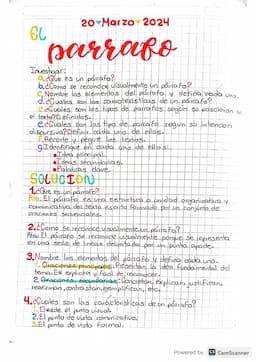 20 Marzo 2024
El
párrafo
Investigar:
a. ¿Qué es un párrafo?
b. ¿Cómo se reconoce visualmente un párrafo?
c. Nombre los elementos del párrafo y defina cada uno.
d. ¿Cuáles son las características de un párrafo?
e. ¿Cuáles son los tipos de párrafos según su posición en
el texto? Defínelos.
e. ¿Cuáles son los tipo de párrafo según su intención
discursiva? Definir cada uno de ellos.
f. Recorte y pegue 
g. Identifique en cada uno de ellos:
Idea principal
Ideas secundarias
Palabras clave
SOLUCIÓN
1. ¿Qué es un párrafo?
Rta: El párrafo es una estructura o unidad organizativa y
comunicativa del texto escrito formada por un conjunto de
oraciones secuenciales.
2. ¿Cómo se reconoce visualmente un párrafo?
Rta: El párrafo se reconoce visualmente porque se representa
en una serie de líneas delimitada por un punto aparte.
3. Nombre los elementos del párrafo y defina cada uno.
1. Oraciones principales: Presentan la idea fundamental del
tema. Es explícita y fácil de reconocer.
2. Oraciones secundarias: explican, justifican,
contrastan, ejemplifican, etc.
4. ¿Cuáles son las características de un párrafo?
1. Desde el punto visual
2. El punto de vista comunicativo.
3. El punto de vista formal.
Powered by CS CamScanner